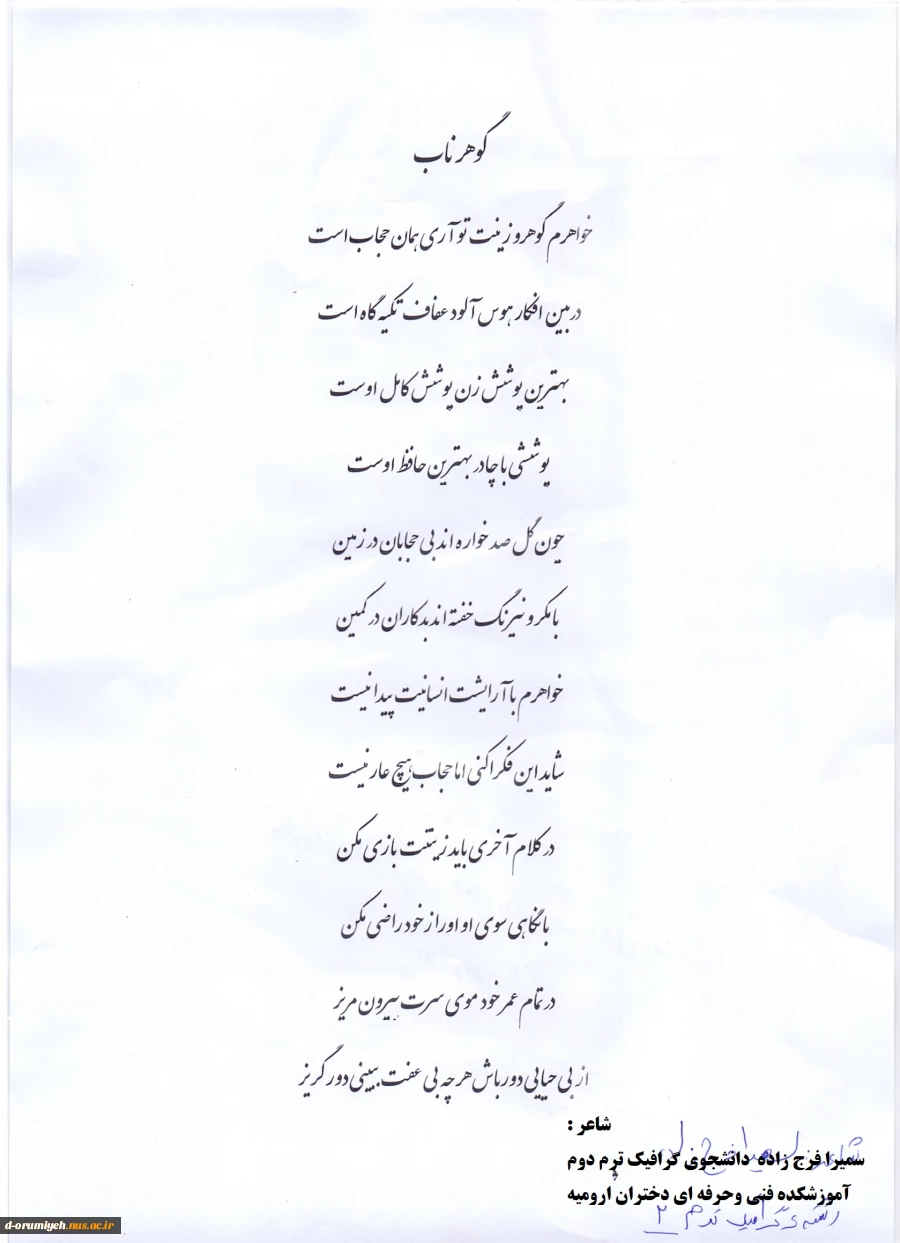 گوهر ناب
خواهرم گوهر و زینت تو آری همان حجاب است
در بین افکار هوس آلود عفاف تکیه گاه است
بهترین پوشش زن پوشش کامل اوست
پوششی با چادر بهترین حافظ اوست
چون گل صد خواره اند بی حجابان در زمین
با مکر و نیرنگ خفته اند بدکاران در کمین
خواهرم با آرایشت انسانیت پیدا نیست
شاید این فکرا کنی اما حجاب هیچ عار نیست
در کلام آخری باید زینتت بازی مکن
با نگاهی سوی او او را از خود راضی مکن
در تمام عمر خود موی سرت بیرون مریز
از بی حیایی دور باش هر چه بی عفت ببینی دور گریز
شاعر :
سمیرا فرج زاده دانشجوی گرافیک ترم دوم
آموزشکده فنی وحرفه ای دختران ارومیه
رشته ی گرافیک ترم ۲
d-orumiyeh.nus.ac.ir